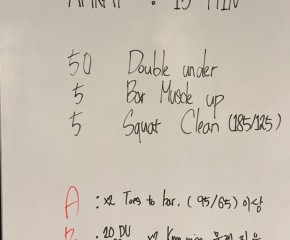 AMRAP : 15 MIN
50 Double under
5 Bar Muscle up
5 Squat Clean (185/125)
A : x2 Toes to bar. (95/65) 이상
B : 20 DU